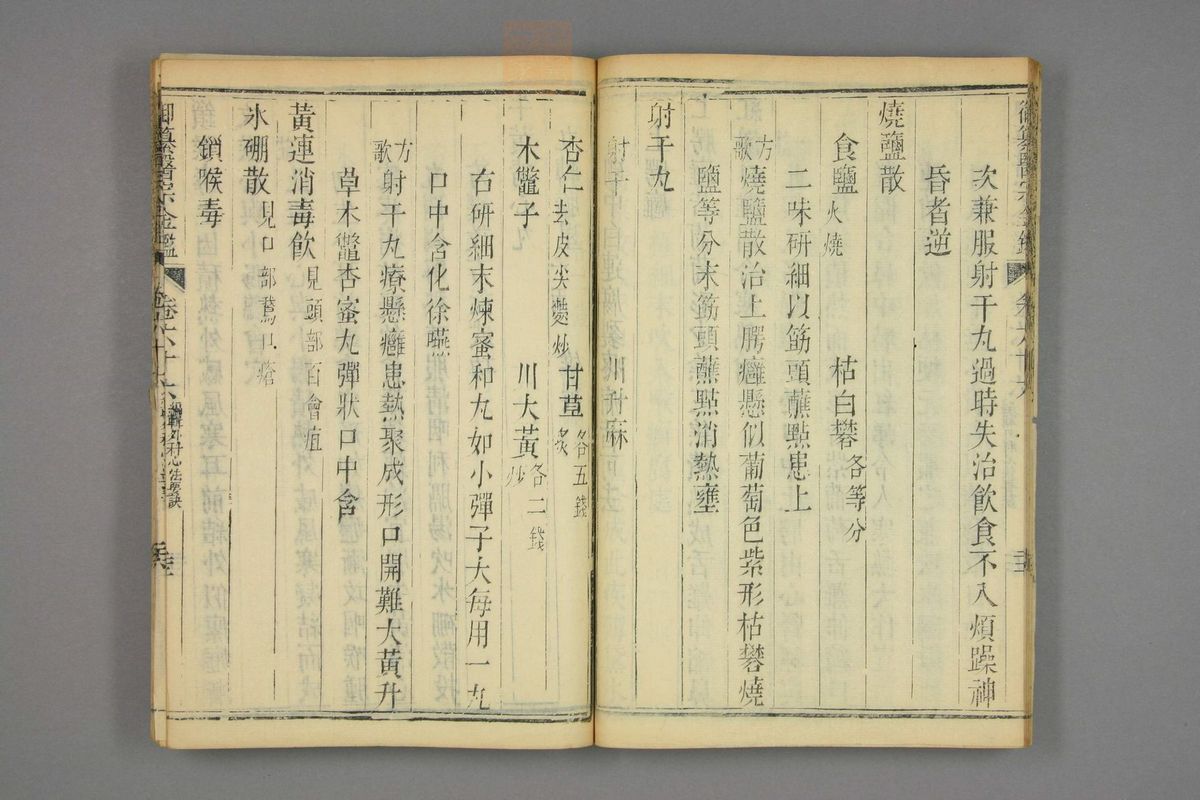 御纂醫宗金鑑 卷六十六
次兼服射干丸過時失治飲食不入煩躁神
昏者逆
燒鹽散
食鹽火燒 枯白礬各等分
二味研細以筯頭蘸點患上
方歌 燒鹽散治上腭癰懸似葡萄色紫形枯礬燒
鹽等分末筯頭蘸點消熱壅
射干丸
射干 川升麻
杏仁去皮尖麩炒 甘草炙各五錢
木鱉子 川大黃炒各二錢
右研細末煉蜜和丸如小彈子大每用一丸
口中含化徐嚥
方歌 射干丸療懸癰患熱聚成形口開難大黃升
草木鱉杏蜜丸彈狀口中含
黃連消毒飲見頭部百會疽
氷硼散見口部鵞口瘡
鎖喉毒
御纂醫宗金鑑 卷六十六 編輯外科心法要訣